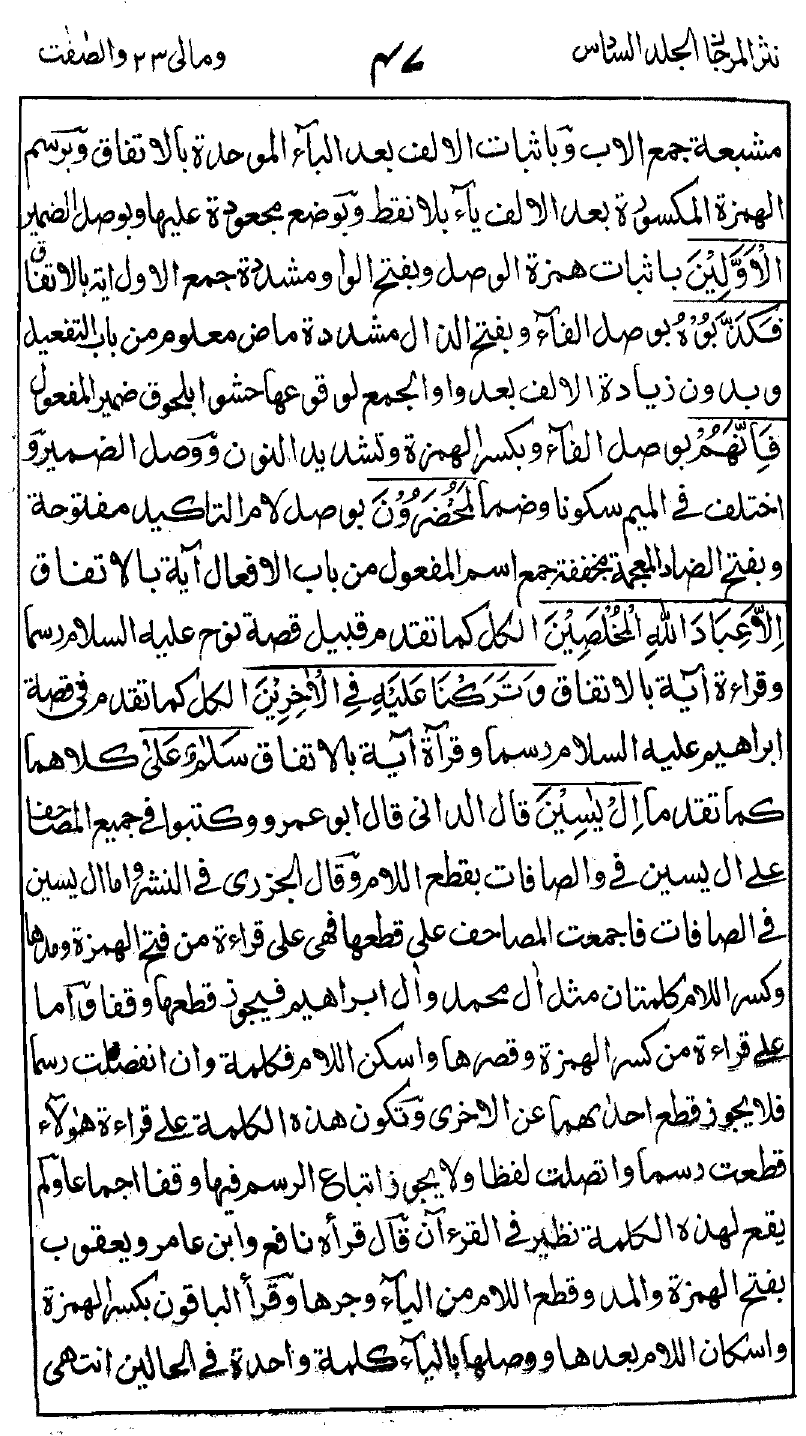 نثر المرجان الجلد السادس ٤٧ ومالی ٢٣ والصّٰفّٰت
مشبعة جمع الاب وّباثبات الالف بعد البآء الموحدة بالاتفاق وّبرسم
الهمزة المكسورة بعد الالف يآء بلا نقط وّبوضع مجعودة عليها وبوصل الضمير
الْاَوَّلِيْنَ باثبات همزة الوصل وبفتح الواو مشددة جمع الاول اية بالاتفاق
فَكَذَّبُوْهُ بوصل الفآء وبفتح الذال مشددة ماض معلوم من باب التفعيل
وبدون زيادة الالف بعد واو الجمع لوقوعها حشوا بلحوق ضمير المفعول
فَاِنَّهُمْ بوصل الفآء وبكسر الهمزة وتشديد النون ووصل الضمير وّ
اختلف فی الميم سكونا وضما لَمُحْضَرُوْنَ بوصل لام التاكيد مفتوحة
وبفتح الضاد المعجمة مخففة جمع اسم المفعول من باب الافعال آية بالاتفاق
اِلَّا عِبَادَ اللّٰهِ الْمُخْلَصِيْنَ الكل كما تقدم قبيل قصة نوح عليه السلام رسما
وقراءة آية بالاتفاق وَتَرَكْنَا عَلَيْهِ فِی الْاٰخِرِيْنَ الكل كما تقدم فی قصة
ابراهيم عليه السلام رسما وقرآة آية بالاتفاق سَلٰمٌ عَلٰی كلاهما
كما تقدما اِلْ يٰسِيْنَ قال الدانی قال ابو عمرو وكتبوا فی جميع المصاحف
علی ال يسين فی والصافات بقطع اللام وّقال الجزری فی النشر واما ال يسين
فی الصافات فاجمعت المصاحف علی قطعها فهی علی قراءة من فتح الهمزة ومدها
وكسر اللام كلمتان مثل اٰل محمد واٰل ابراهيم فيجوز قطعها وقفا وّاما
علی قراءة من كسر الهمزة وقصرها واسكن اللام فكلمة وان انفصلت رسما
فلا يجوز قطع احدٰهما عن الاخری وّتكون هذه الكلمة علی قراءة هٰولآء
قطعت رسما واتصلت لفظا ولا يجوز اتباع الرسم فيها وقفا اجماعا وّلم
يقع لهذه الكلمة نظير فی القرءآن قّال قرأه نافع وابن عامر ويعقوب
بفتح الهمزة والمد وقطع اللام من اليآء وجرها وّقرأ الباقون بكسر الهمزة
واسكان اللام بعدها ووصلها باليآء كلمة واحدة فی الحالين انتهی